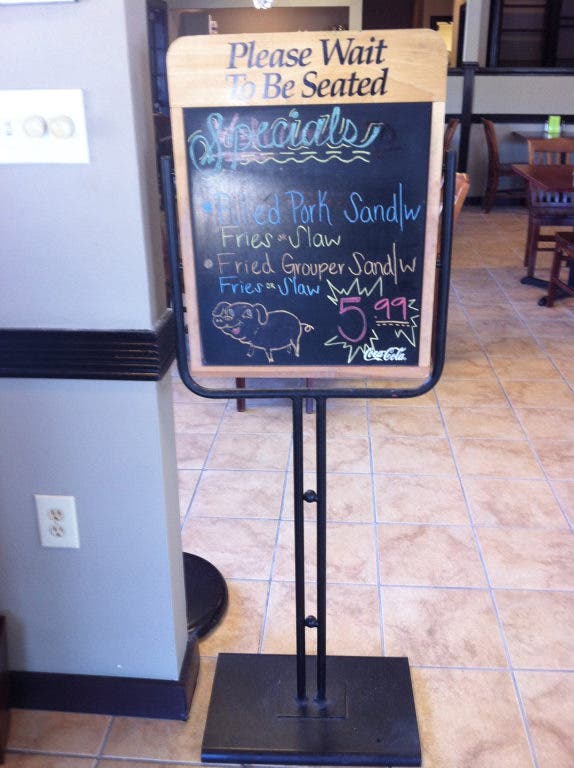 Please Wait
To Be Seated
Specials
Pulled Pork Sand/w
Fries or Slaw
Fried Grouper Sand/w
Fries or Slaw
5.99
Coca-Cola